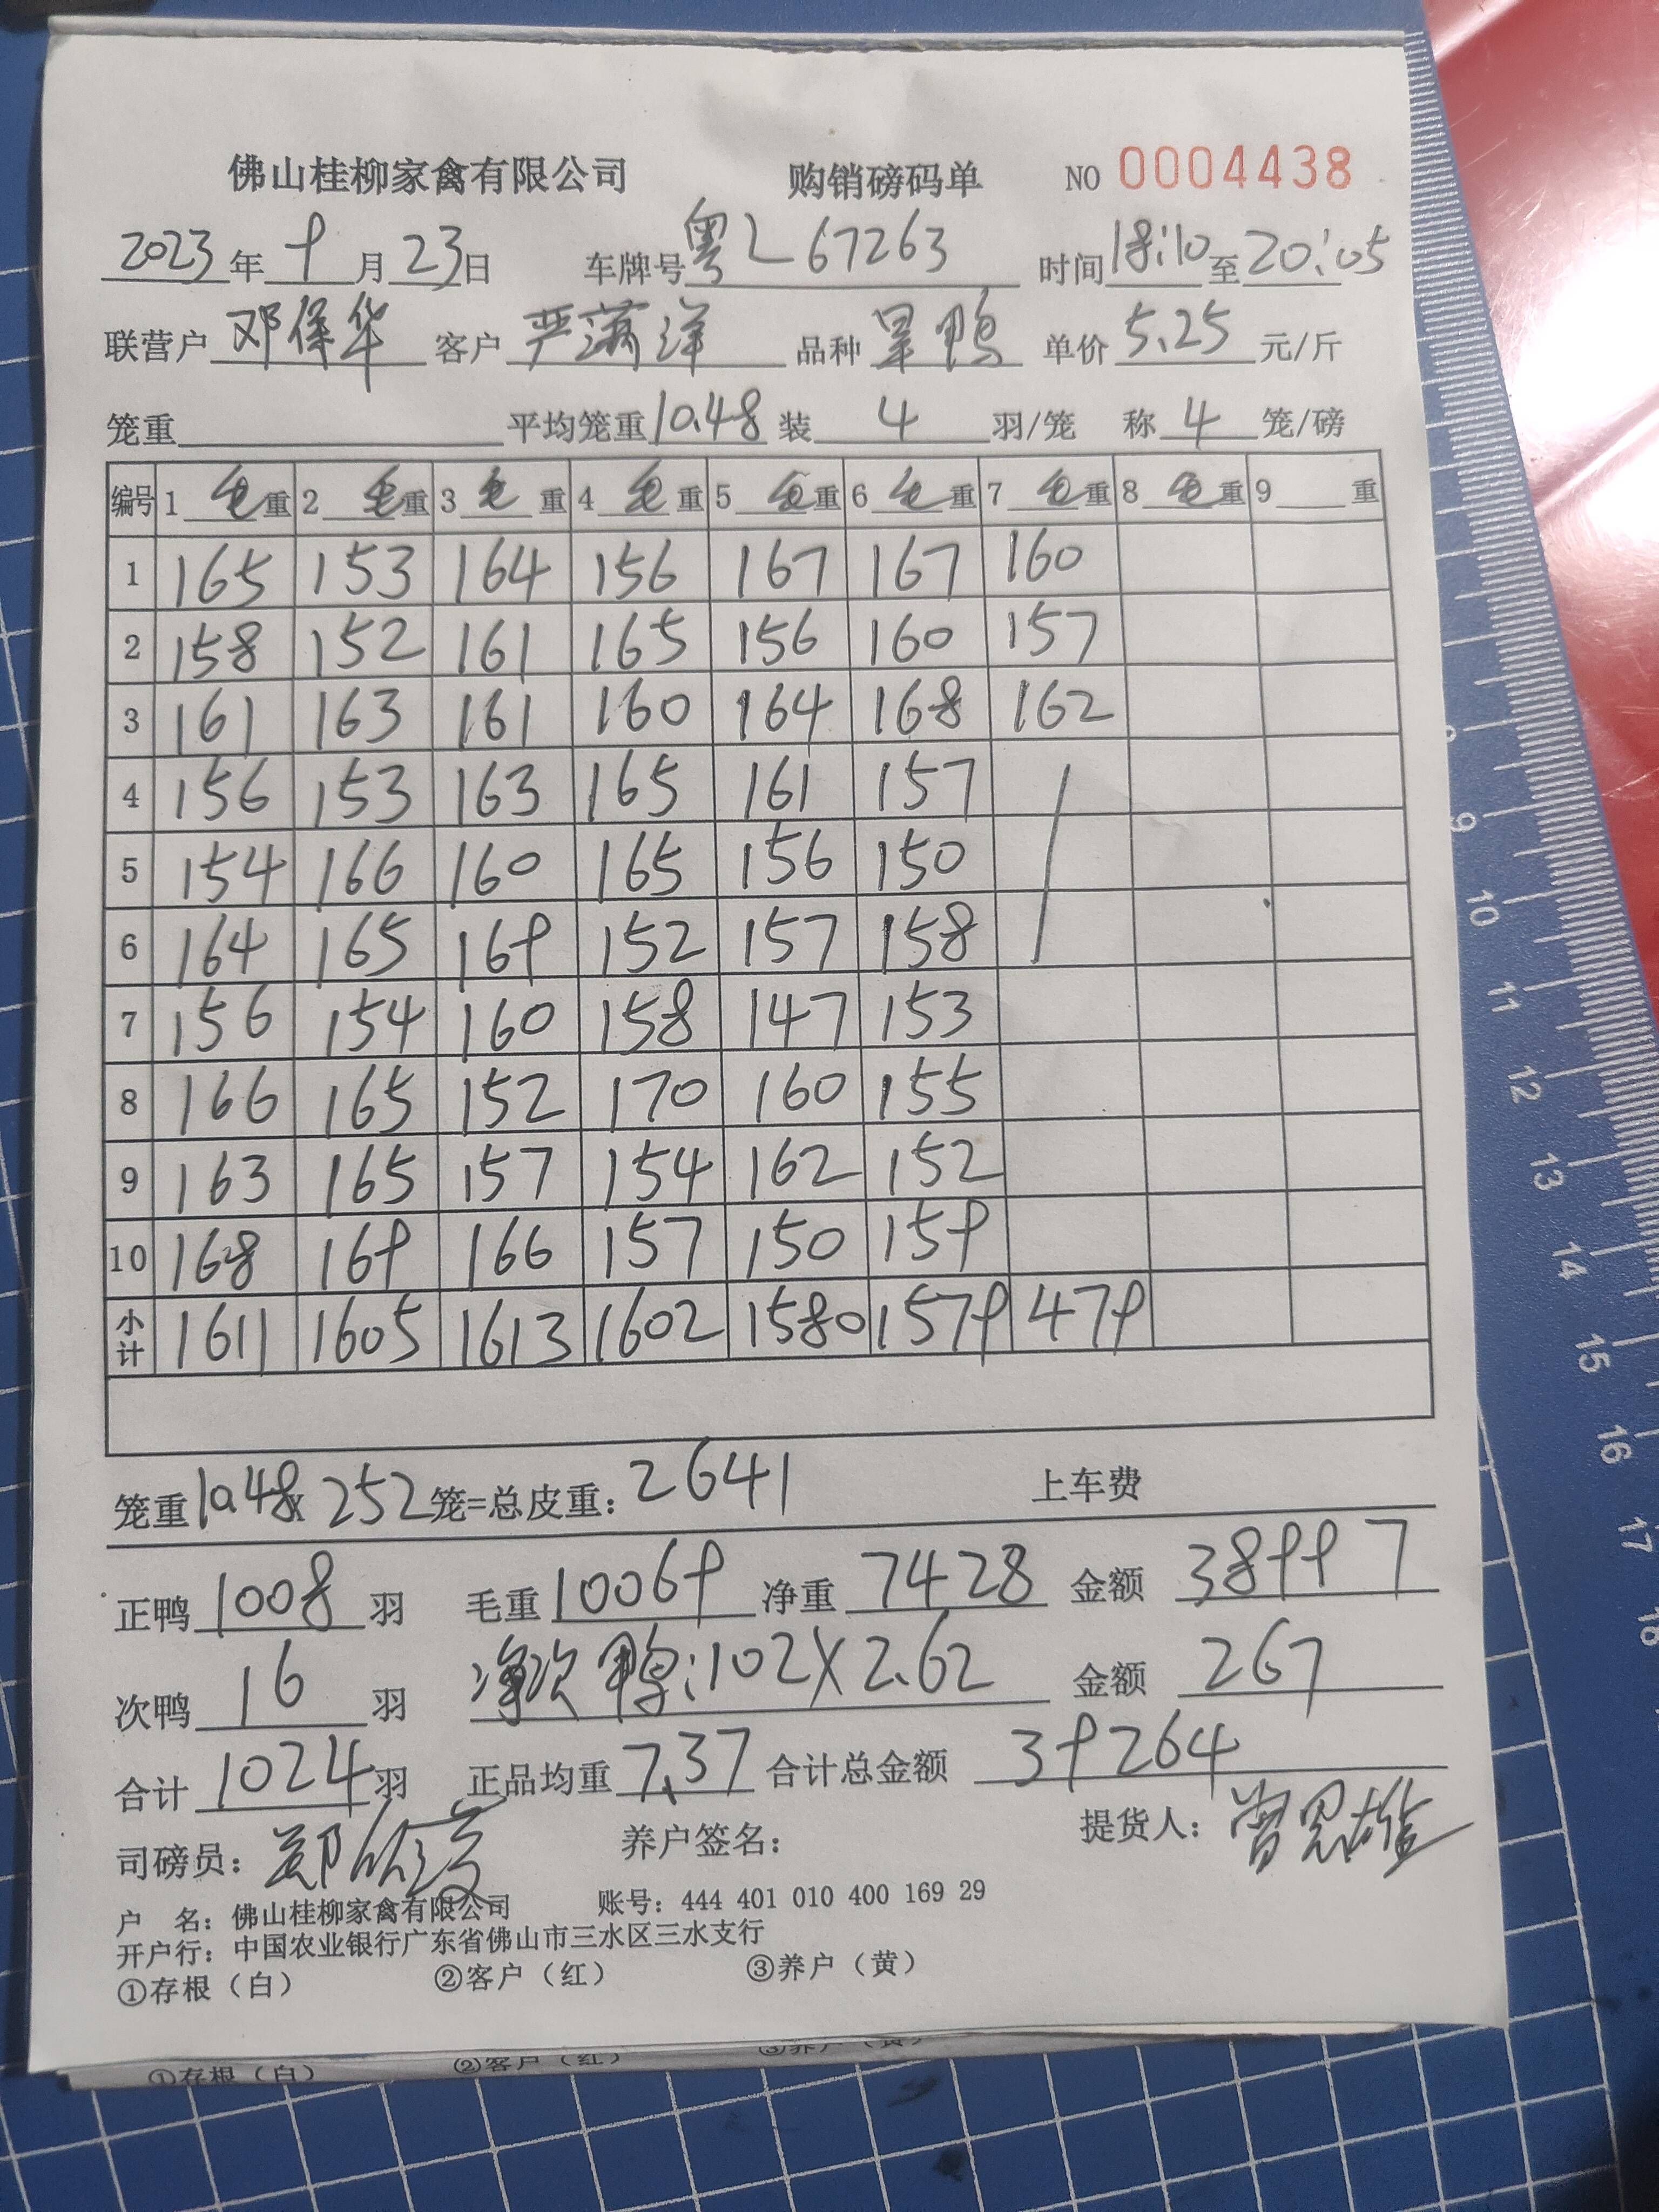 佛山桂柳家禽有限公司 购销磅码单 NO 0004438
2023年 9月 23日 车牌号 粤L67263 时间 18:10 至 20:05
联营户 邓保华 客户 严 洋 品种 鸭 单价 5.25 元/斤
笼重 平均笼重 10.48 装 4 羽/笼 称 4 笼/磅
编号 1 毛重 2 毛重 3 毛重 4 毛重 5 毛重 6 毛重 7 毛重 8 毛重 9 重
1 165 153 164 156 167 167 160
2 158 152 161 165 156 160 157
3 161 163 161 160 164 168 162
4 156 153 163 165 161 157
5 154 166 160 165 156 150
6 164 165 169 152 157 158
7 156 154 160 158 147 153
8 166 165 152 170 160 155
9 163 165 157 154 162 152
10 168 169 166 157 150 159
小计 1611 1605 1613 1602 1580 1579 479
笼重 10.48 x 252 笼=总皮重: 2641 上车费
正鸭 1008 羽 毛重 10069 净重 7428 金额 38997
次鸭 16 羽 净次鸭:102X2.62 金额 267
合计 1024 羽 正品均重 7.37 合计总金额 39264
司磅员: 郑 养户签名: 提货人: 曾恩雄
户 名: 佛山桂柳家禽有限公司 账号: 444 401 010 400 169 29
开户行: 中国农业银行广东省佛山市三水区三水支行
①存根（白） ②客户（红） ③养户（黄）
①存根（白） ②客户（红） ③养户（黄）
8
9
10
11
12
13
14
15
16
17
18